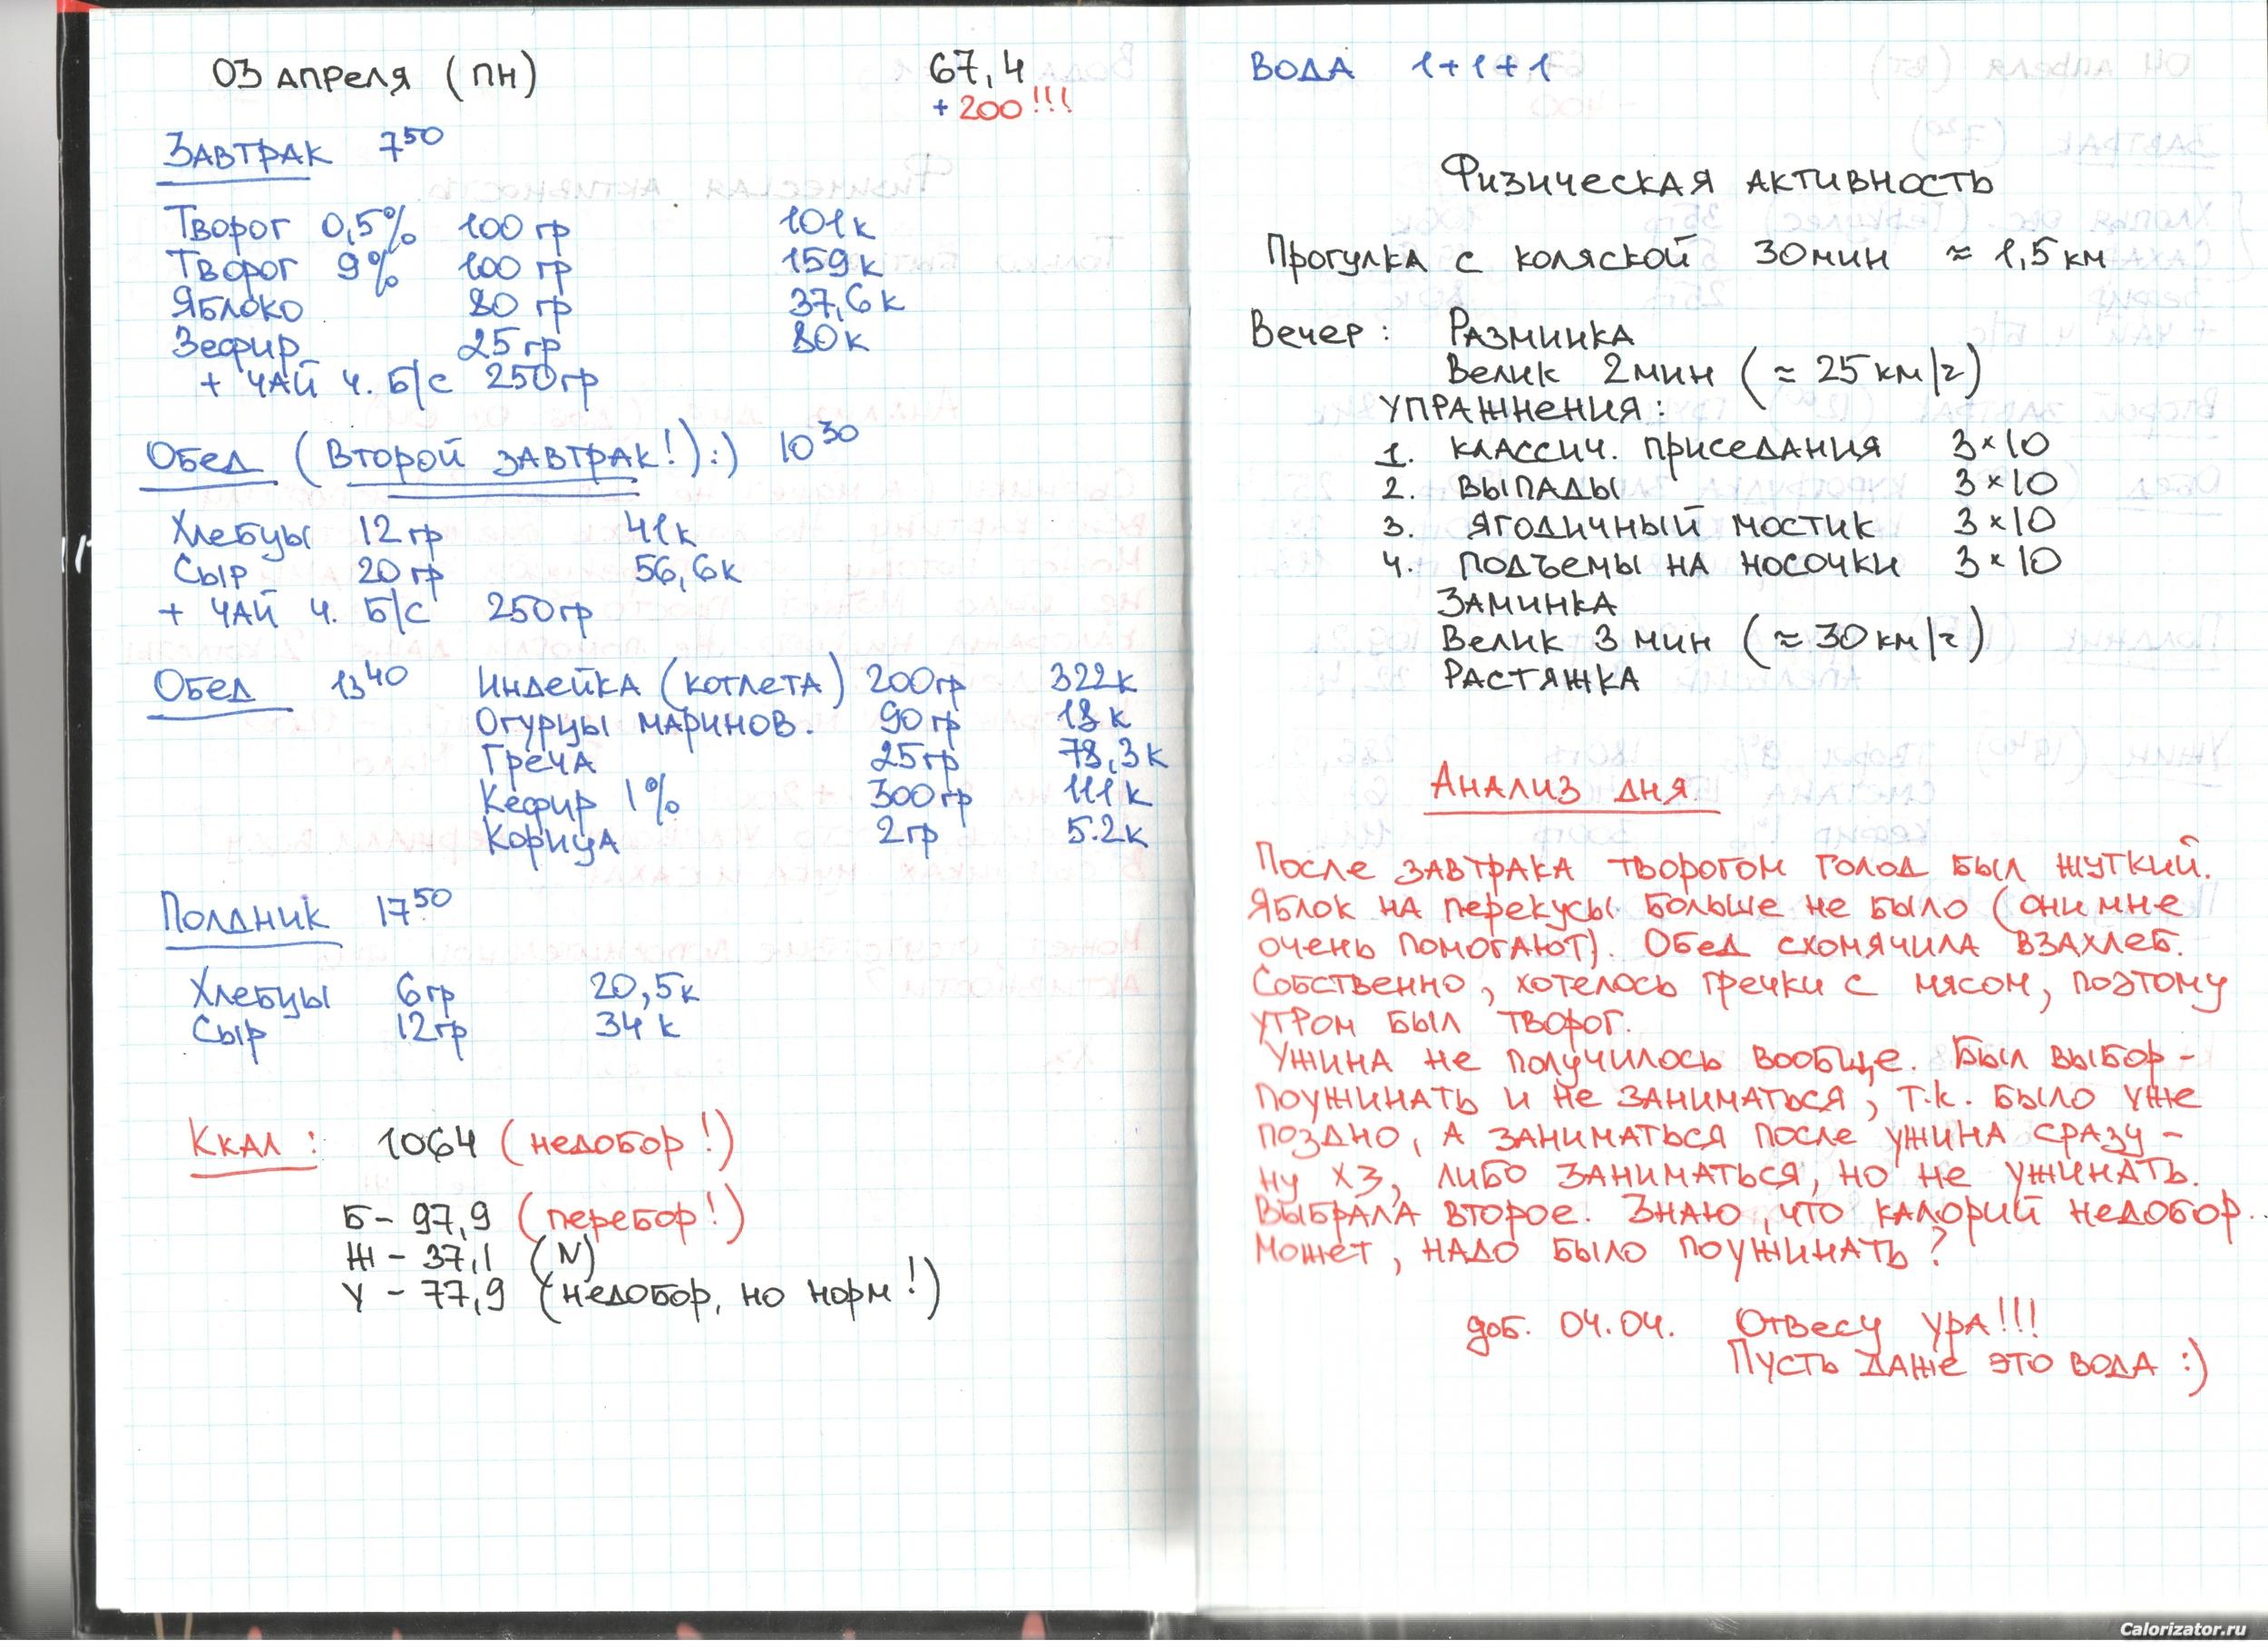 03 апреля (пн) 67,4
+ 200!!!
Завтрак 7⁵⁰
Творог 0,5% 100 гр 101к
Творог 9% 100 гр 159к
Яблоко 80 гр 37,6к
Зефир 25 гр 80к
+ чай ч. б/с 250гр
Обед (Второй завтрак!):) 10³⁰
Хлебцы 12 гр 41к
Сыр 20 гр 56,6к
+ чай ч. б/с 250гр
Обед 13⁴⁰ Индейка (котлета) 200гр 322к
Огурцы маринов. 90гр 18к
Греча 25гр 78,3к
Кефир 1% 300гр 111к
Корица 2гр 5.2к
Полдник 17⁵⁰
Хлебцы 6гр 20,5к
Сыр 12гр 34к
Ккал: 1064 (недобор!)
Б- 97,9 (перебор!)
Ж - 37,1 (N)
У - 77,9 (недобор, но норм!)
Вода 1+1+1
Физическая активность
Прогулка с коляской 30мин ≈ 1,5 км
Вечер: Разминка
Велик 2мин (≈ 25 км/ч)
Упражнения:
1. классич. приседания 3×10
2. выпады 3×10
3. ягодичный мостик 3×10
4. подъемы на носочки 3×10
Заминка
Велик 3 мин (≈30 км/ч)
Растяжка
Анализ дня
После завтрака творогом голод был жуткий.
Яблок на перекусы больше не было (они мне
очень помогают). Обед схомячила взахлеб.
Собственно, хотелось гречки с мясом, поэтому
утром был творог.
Ужина не получилось вообще. Был выбор -
поужинать и не заниматься, т.к. было уже
поздно, а заниматься после ужина сразу -
ну хз, либо заниматься, но не ужинать.
Выбрала второе. Знаю, что калорий недобор..
Может, надо было поужинать?
доб. 04.04. Отвесу ура!!!
Пусть даже это вода :)
Calorizator.ru